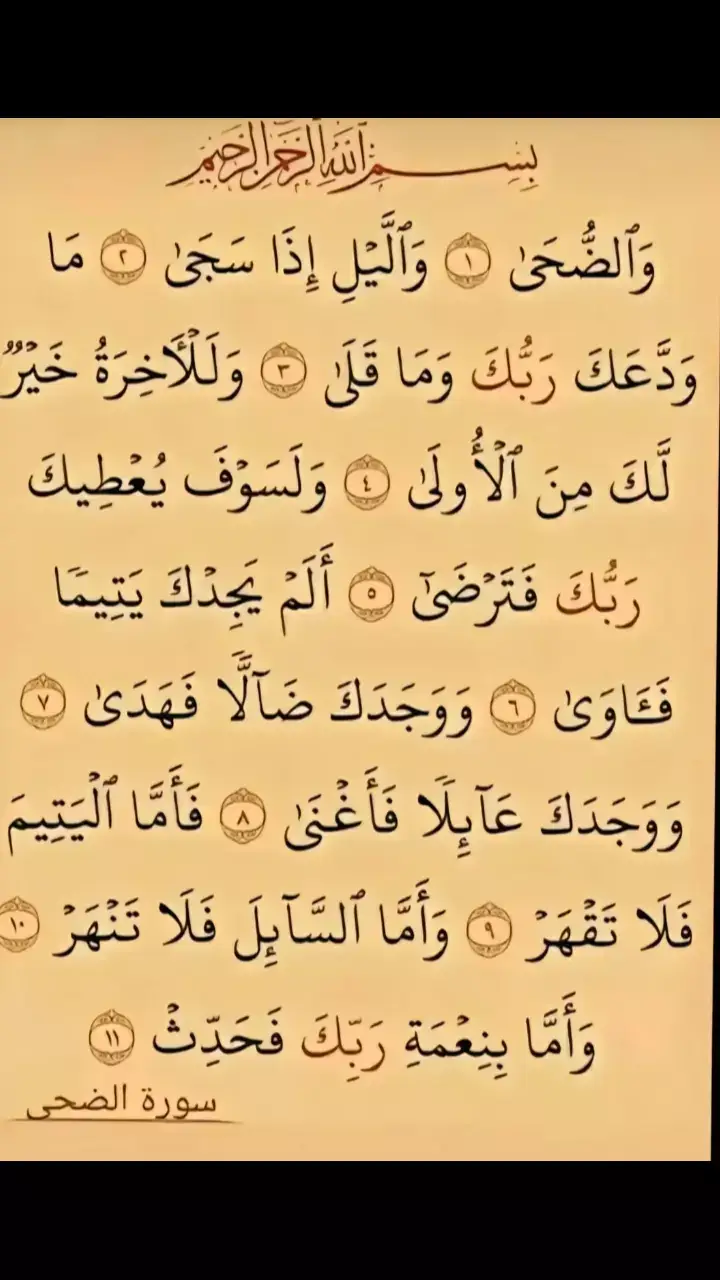 بِسْمِ ٱللَّهِ ٱلرَّحْمَٰنِ ٱلرَّحِيمِ
وَٱلضُّحَىٰ ١ وَٱلَّيْلِ إِذَا سَجَىٰ ٢ مَا
وَدَّعَكَ رَبُّكَ وَمَا قَلَىٰ ٣ وَلَلْأَخِرَةُ خَيْرٌ
لَّكَ مِنَ ٱلْأُولَىٰ ٤ وَلَسَوْفَ يُعْطِيكَ
رَبُّكَ فَتَرْضَىٰٓ ٥ أَلَمْ يَجِدْكَ يَتِيمًا
فَـَٔاوَىٰ ٦ وَوَجَدَكَ ضَآلًّا فَهَدَىٰ ٧
وَوَجَدَكَ عَآئِلًا فَأَغْنَىٰ ٨ فَأَمَّا ٱلْيَتِيمَ
فَلَا تَقْهَرْ ٩ وَأَمَّا ٱلسَّآئِلَ فَلَا تَنْهَرْ ١٠
وَأَمَّا بِنِعْمَةِ رَبِّكَ فَحَدِّثْ ١١
سورة الضحى